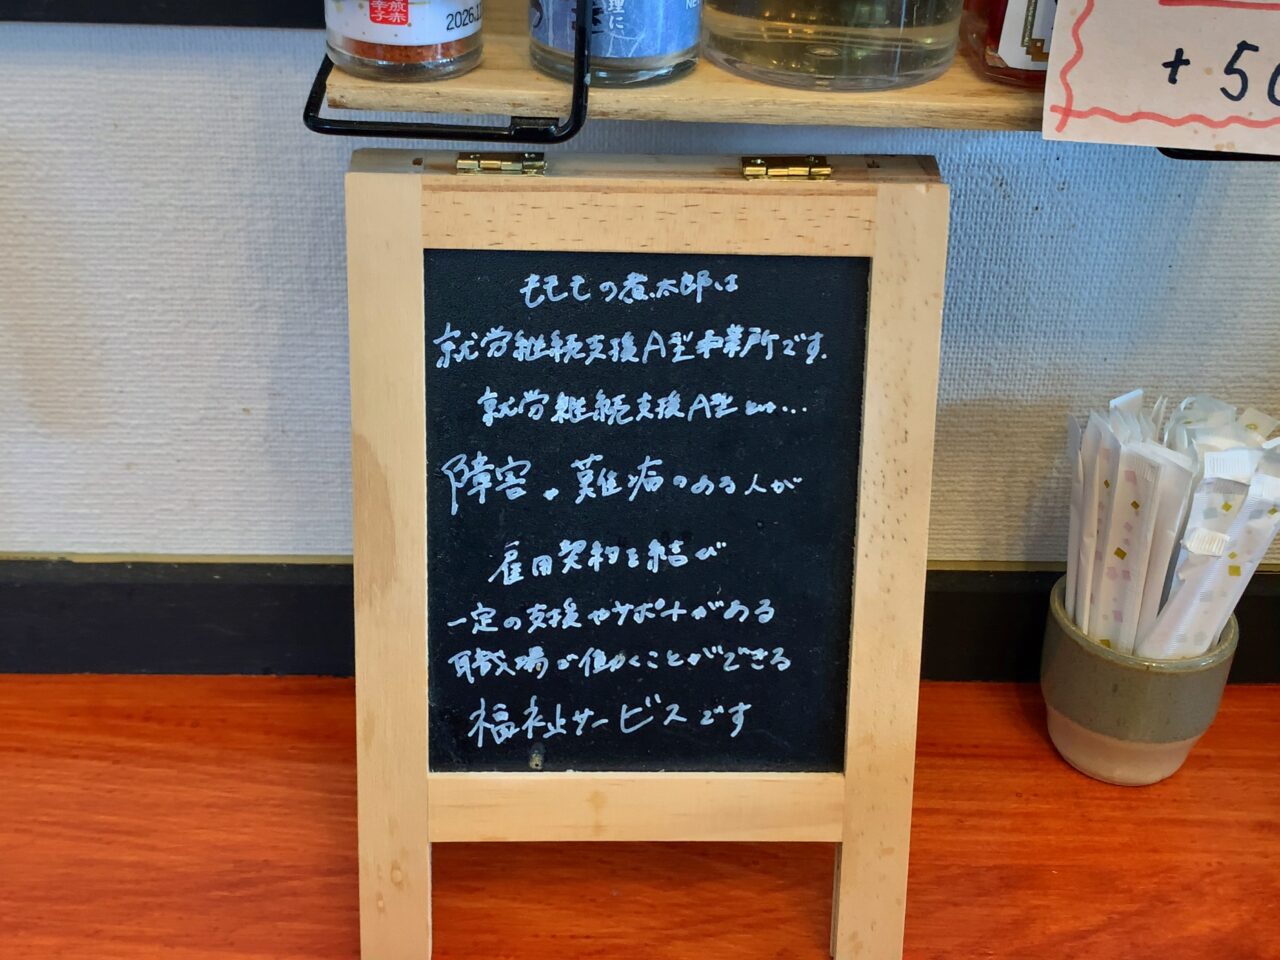 2026.1
+50
もももの煮太郎は
就労継続支援A型事業所です.
就労継続支援A型とは...
障害や難病のある人が
雇用契約を結び
一定の支援やサポートがある
職場で働くことができる
福祉サービスです